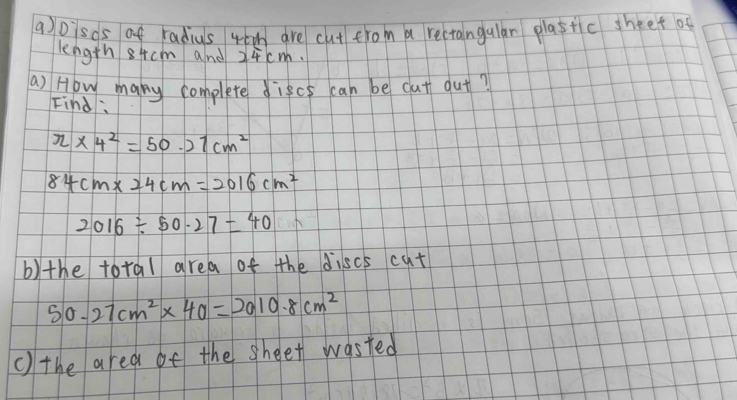 9) Discs of radius 4cm are cut from a rectangular plastic sheet of
length 84cm and 24cm.
a) How many complete discs can be cut out?
Find:
π × 4² = 50.27cm²
84cm × 24cm = 2016cm²
2016 ÷ 50.27 = 40
b) the total area of the discs cut
50.27cm² × 40 = 2010.8cm²
c) the area of the sheet wasted